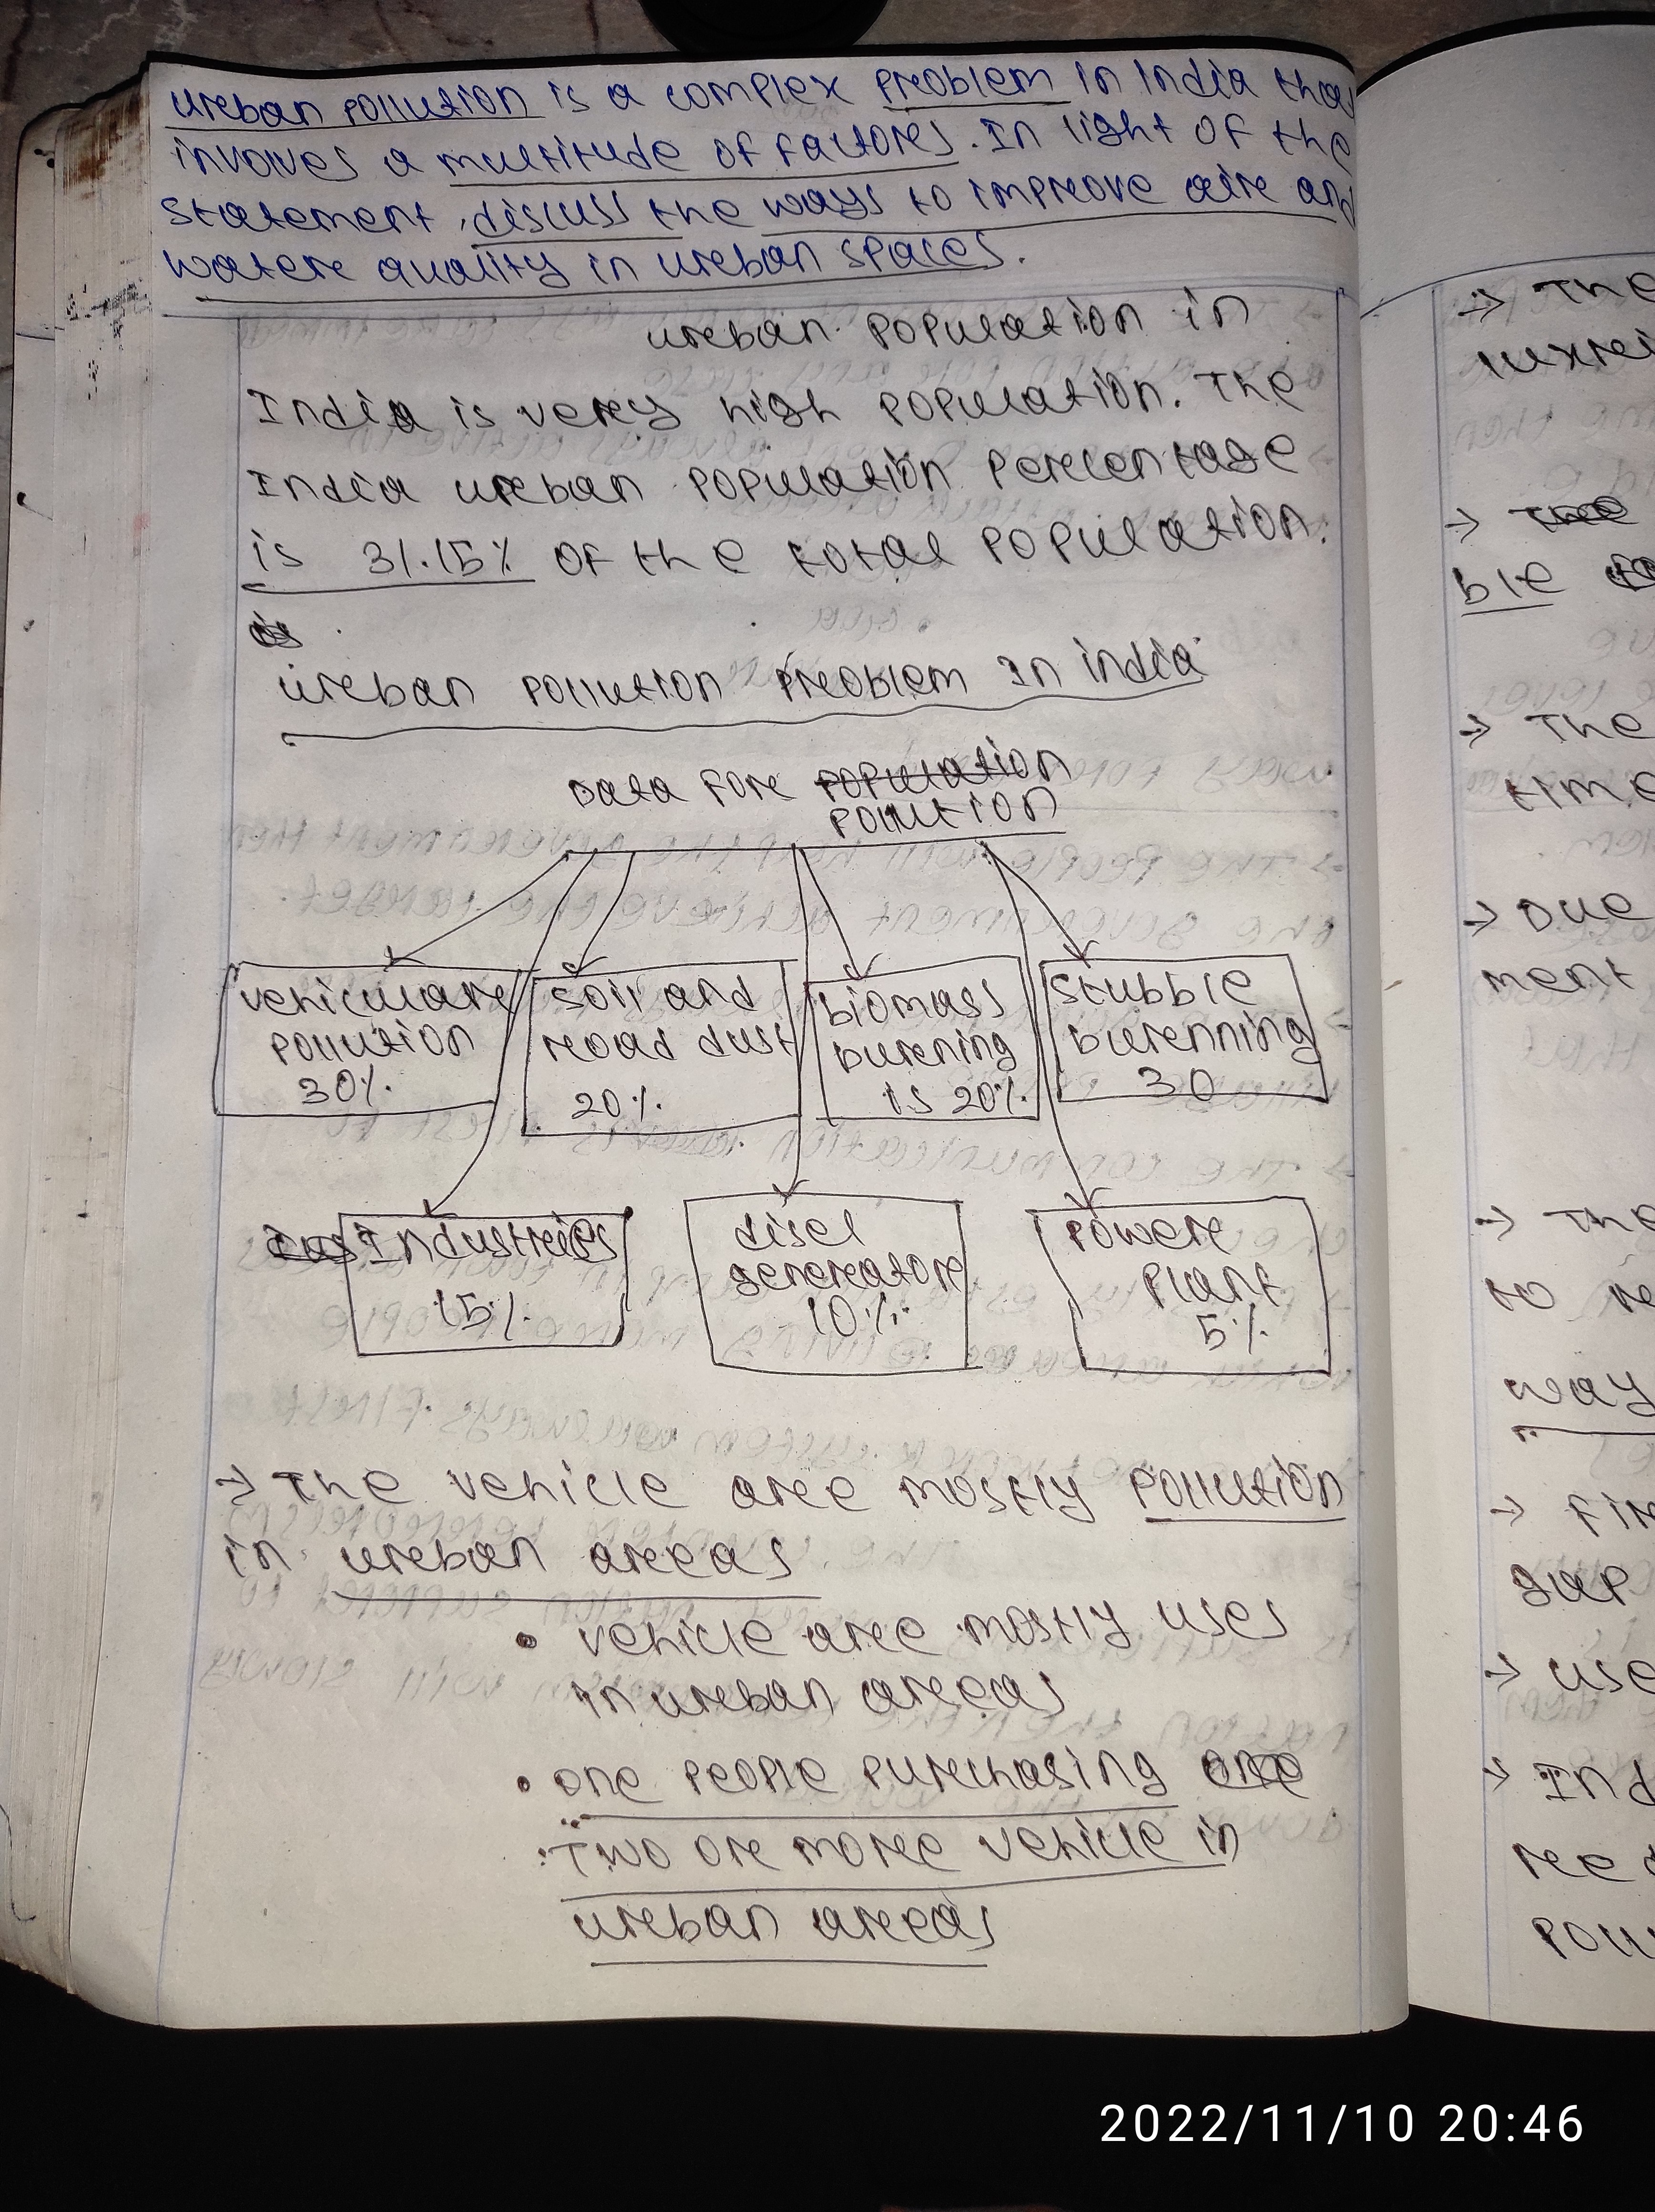 Urban pollution is a complex problem in India that
involves a multitude of factors. In light of the
statement, discuss the ways to improve air and
water quality in urban spaces.
urban population in
India is very high population. The
India urban population percentage
is 31.15% of the total population.
urban pollution problem In india
Data for population
pollution
vehicular
pollution
30%
soil and
road dust
20%
biomass
burning
is 20%
stubble
burnning
30
Industries
15%
disel
generator
10%
Power
Plant
5%
→ The vehicle are mostly pollution
in urban areas
• vehicle are mostly uses
in urban areas
• one people purchasing
Two or more vehicle in
urban areas
→ The
→ The
ble
→ The
time
→ Due
ment
→ The
to re
way
→ Fir
sup
→ use
→ Ind
red
pollu
2022/11/10 20:46